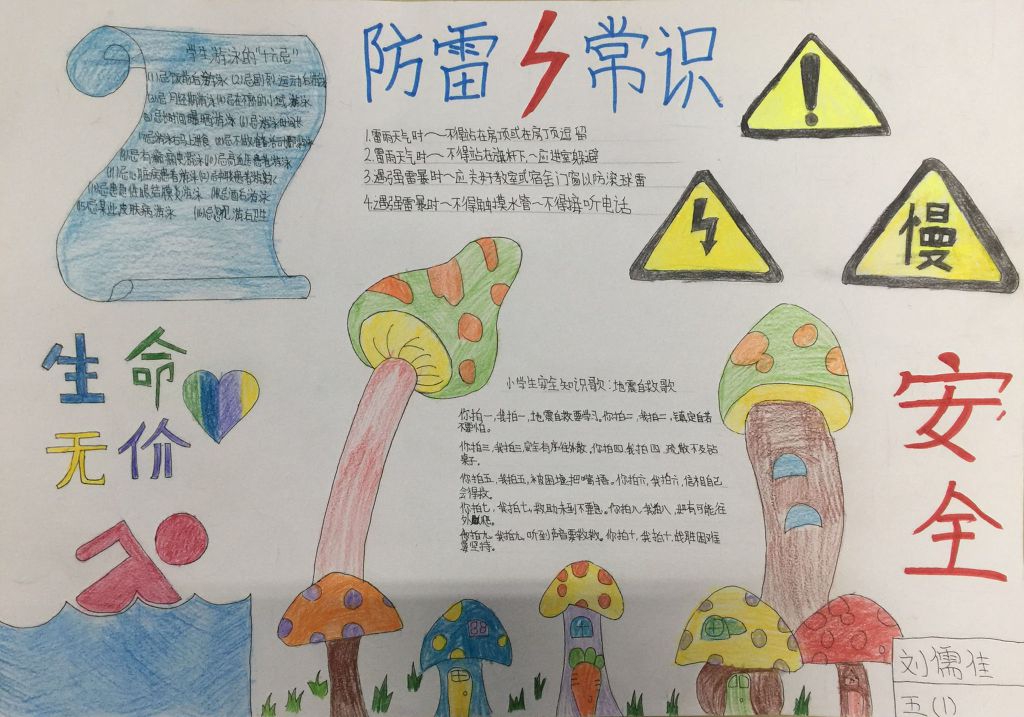 学生游泳的“十六忌”
(1)忌饭前后游泳 (2)忌剧烈运动后游泳
(3)忌月经期游泳 (4)忌在不熟的水域游泳
(5)忌长时间曝晒游泳 (6)忌
(7)忌游泳后马上进食 (8)忌
(10)忌高血压患者游泳
(11)忌心脏病患者游泳
(14)忌酒后游泳
(15)忌某些皮肤病游泳
防雷常识
1.雷雨天气时～不得站在房顶或在房丁页逗留
2.雷雨天气时～不得站在旗杆下,～应进室躲避
3.遇强雷暴时～应关好教室或宿舍门窗以防滚球雷
4.遇强雷暴时～不得触摸水管～不得接听电话
慢
生命
无价
小学生安全知识歌：地震自救歌
你拍一,我拍一,地震自救要学习。你拍二,我拍二,镇定自若
不要怕。
你拍三,我拍三,安全有序往外散。你拍四,我拍四,疏散不及钻
桌子。
你拍五,我拍五,被困墙把嘴捂。你拍六,我拍六,信相自己
会得救。
你拍七,我拍七,救助未到不要急。你拍八,我拍八,
你拍九,我拍九,听到声音要救救。你拍十,我拍十,战胜困难
要坚持。
安
全
刘儒佳
五(1)